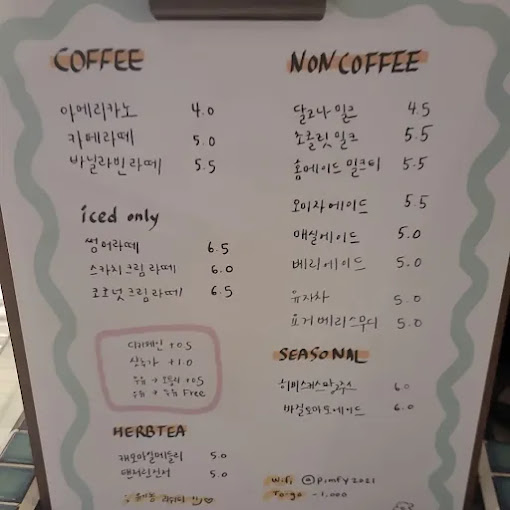 COFFEE
아메리카노 4.0
카페라떼 5.0
바닐라빈라떼 5.5
iced only
썽어라떼 6.5
스카치크림라떼 6.0
코코넛크림라떼 6.5
디카페인 +0.5
샷추가 +1.0
우유 → 오트 +0.5
Free
HERBTEA
캐모마일메들리 5.0
탠저린진저 5.0
NON COFFEE
달고나밀크 4.5
초콜릿밀크 5.5
홈메이드밀크티 5.5
오미자에이드 5.5
매실에이드 5.0
베리에이드 5.0
유자차 5.0
요거베리스무디 5.0
SEASONAL
6.0
바질토마토에이드 6.0
Wifi @pimfy2021
To-go -1,000